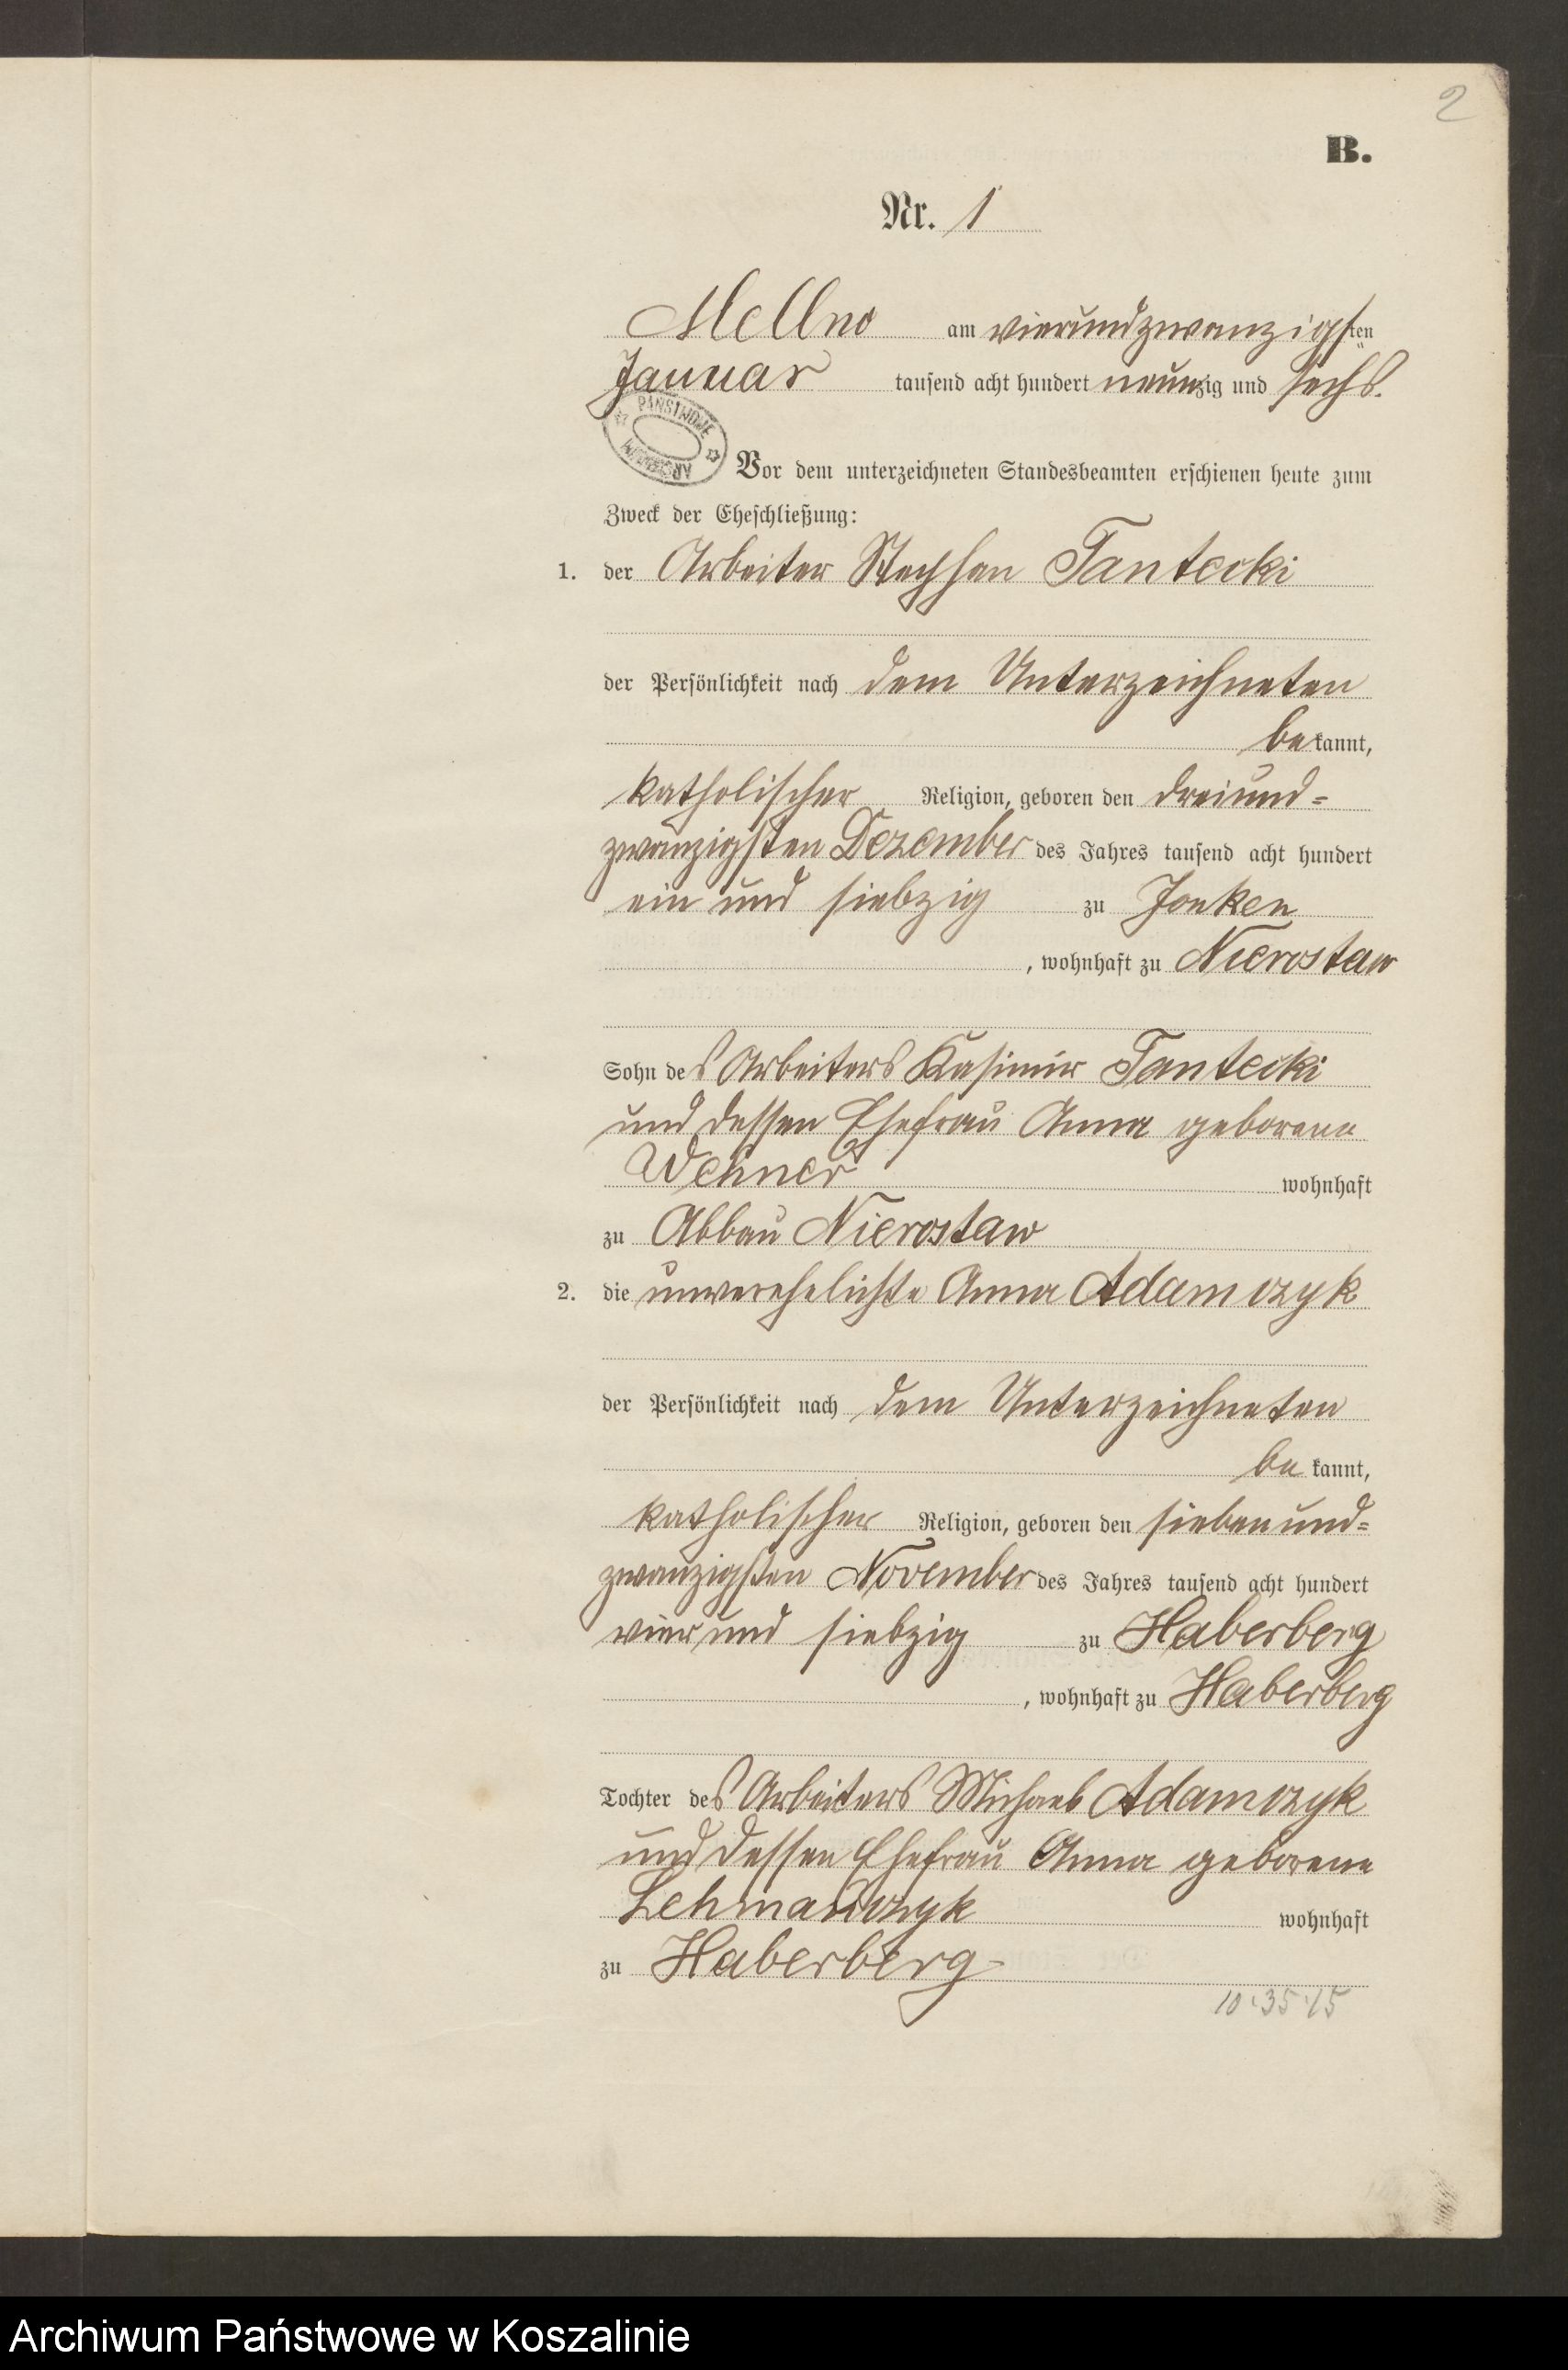 2
B.
Nr. 1
Mellno am vierundzwanzigsten
Januar tausend acht hundert neunzig und sechs.
PAŃSTWOWE ARCHIWUM
Vor dem unterzeichneten Standesbeamten erschienen heute zum
Zweck der Eheschließung:
1. der Arbeiter Stephan Tantecki
der Persönlichkeit nach dem Unterzeichneten
bekannt,
katholischer Religion, geboren den dreiund=
zwanzigsten Dezember des Jahres tausend acht hundert
ein und siebzig zu Jonken
, wohnhaft zu Nierostaw
Sohn des Arbeiters Kasimir Tantecki
und dessen Ehefrau Anna geborene
Wehner wohnhaft
zu Abbau Nierostaw
2. die unverehelichte Anna Adamczyk
der Persönlichkeit nach dem Unterzeichneten
bekannt,
katholischer Religion, geboren den siebenund=
zwanzigsten November des Jahres tausend acht hundert
vier und siebzig zu Haberberg
, wohnhaft zu Haberberg
Tochter des Arbeiters Michael Adamczyk
und dessen Ehefrau Anna geborene
wohnhaft
zu Haberberg
10·35·15
Archiwum Państwowe w Koszalinie